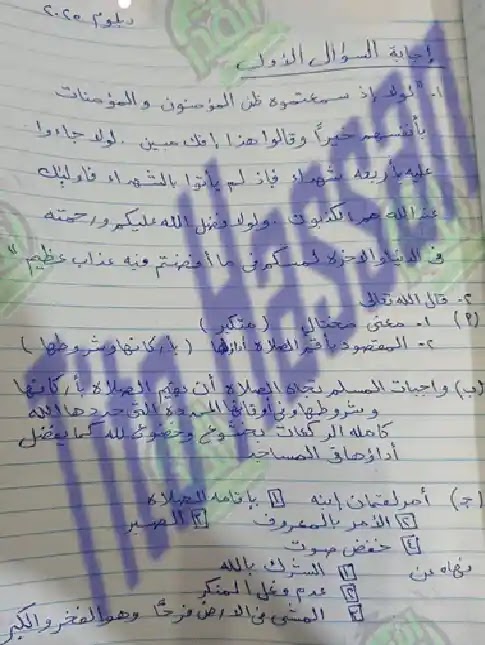 دبلوم ٢٠٢٥
إجابة السؤال الأول
١- "لولا إذ سمعتموه ظن المؤمنون والمؤمنات
بأنفسهم خيراً وقالوا هذا إفك مبين . لولا جاءوا
عليه بأربعة شهداء فإذ لم يأتوا بالشهداء فاولئك
عند الله هم الكذبون . ولولا فضل الله عليكم ورحمته
في الدنيا والاخرة لمسكم في ما أفضتم فيه عذاب عظيم"
٢- قال الله تعالى
(أ) ١- معنى مختال (متكبر)
٢- المقصود بأقم الصلاة أداؤها (بأركانها وشروطها)
(ب) واجبات المسلم تجاه الصلاة أن يقيم الصلاة بأركانها
وشروطها وفي أوقاتها المحددة التي حددها الله
كاملة الركعات بخشوع وخضوع لله كما يفضل
أداؤها في المساجد
(ج) أمر لقمان إبنه ١ بإقامه الصلاة
٢ الأمر بالمعروف ٣ الصبر
٤ خفض صوت
نهاه عن ١ الشرك بالله
٢ عدم فعل المنكر
٣ المشي في الارض فرحًا وهو الفخر والكبر
Tito Hassan